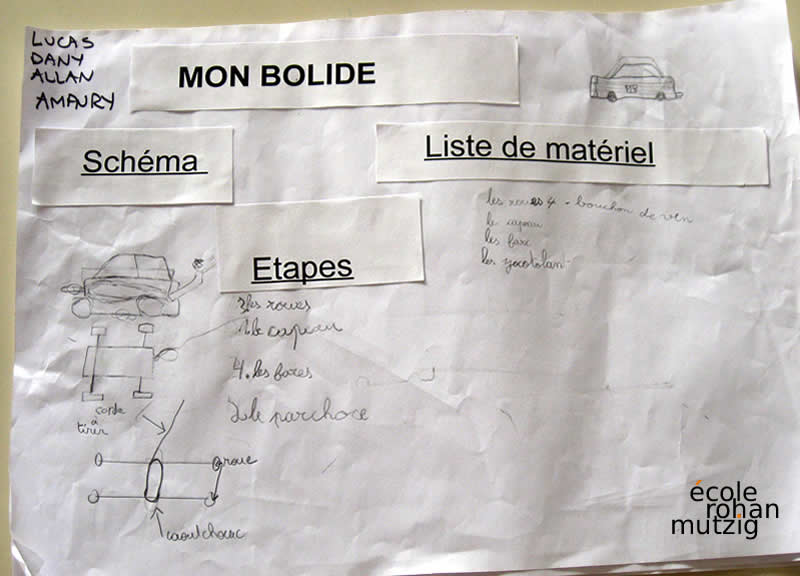 LUCAS
DANY
ALLAN
AMAURY
MON BOLIDE
Schéma
Liste de matériel
les roues 4 - bouchon de ven
le capeau
les farx
Etapes
3 les roues
1. le capeau
4. les fares
2 le parchoce
corde
à
tirer
roue
caoutchouc
école
rohan
mutzig